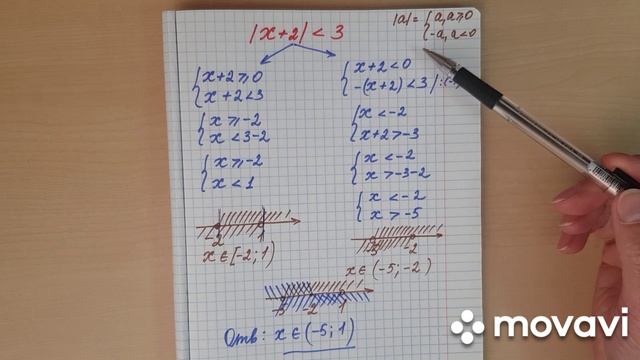 |x+2|<3
|a|={a, a≥0
{-a, a<0
{x+2≥0
x+2<3
{x≥-2
x<3-2
{x≥-2
x<1
-2 1
x∈[-2;1)
{x+2<0
-(x+2)<3 |:(-
{x<-2
x+2>-3
{x<-2
x>-3-2
{x<-2
x>-5
-5 -2
x∈(-5;-2)
-5 -2 1
Отв: x∈(-5;1)
movavi